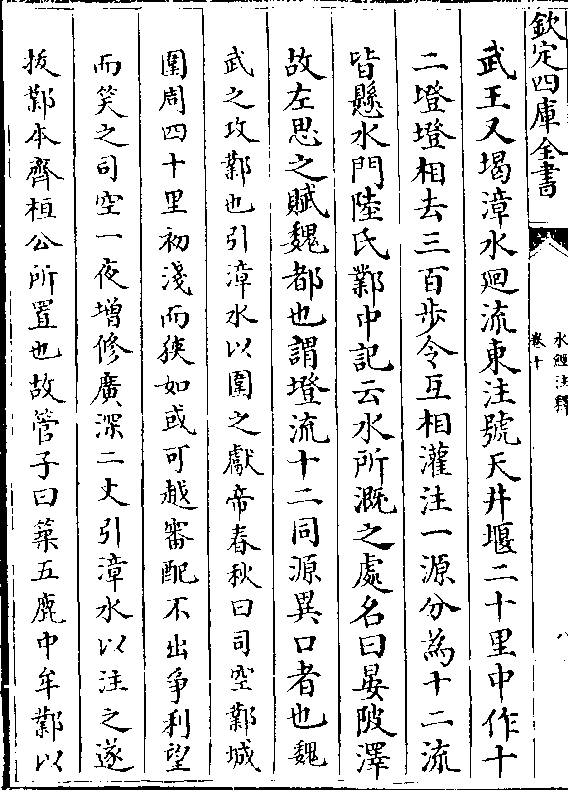 欽定四庫全書
水經注釋
卷十
八
武王又堨漳水迴流東注號天井堰二十里中作十
二墱墱相去三百步令互相灌注一源分為十二流
皆懸水門陸氏鄴中記云水所溉之處名曰晏陂澤
故左思之賦魏都也謂墱流十二同源異口者也魏
武之攻鄴也引漳水以圍之獻帝春秋曰司空鄴城
圍周四十里初淺而狹如或可越審配不出爭利望
而笑之司空一夜增修廣深二丈引漳水以注之遂
拔鄴本齊桓公所置也故管子曰築五鹿中牟鄴以